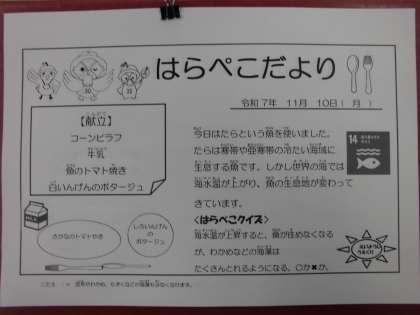 はらぺこだより
令和7年 11月 10日(月)
【献立】
コーンピラフ
牛乳
魚のトマト焼き
白いんげんのポタージュ
さかなのトマトやき
しろいんげんの
ポタージュ
今日はたらという魚を使いました。
たらは寒帯や亜寒帯の冷たい海域に
生息する魚です。しかし世界の海では
海水温が上がり、魚の生息地が変わって
きています。
14
<はらぺこクイズ>
海水温が上昇すると、魚が住めなくなる
が、わかめなどの海藻は
たくさんとれるようになる。○か✖か。